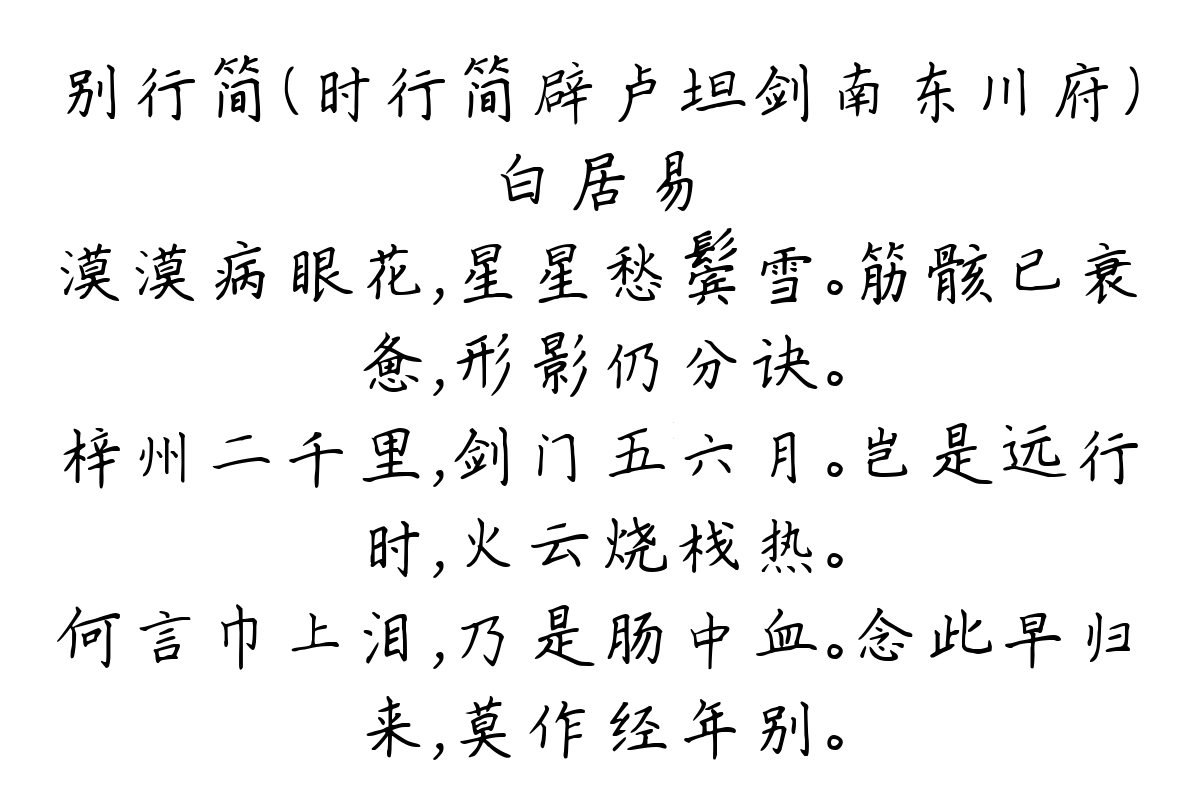 别行简(时行简辟卢坦剑南东川府)
白居易
漠漠病眼花,星星愁鬓雪。筋骸已衰
惫,形影仍分诀。
梓州二千里,剑门五六月。岂是远行
时,火云烧栈热。
何言巾上泪,乃是肠中血。念此早归
来,莫作经年别。